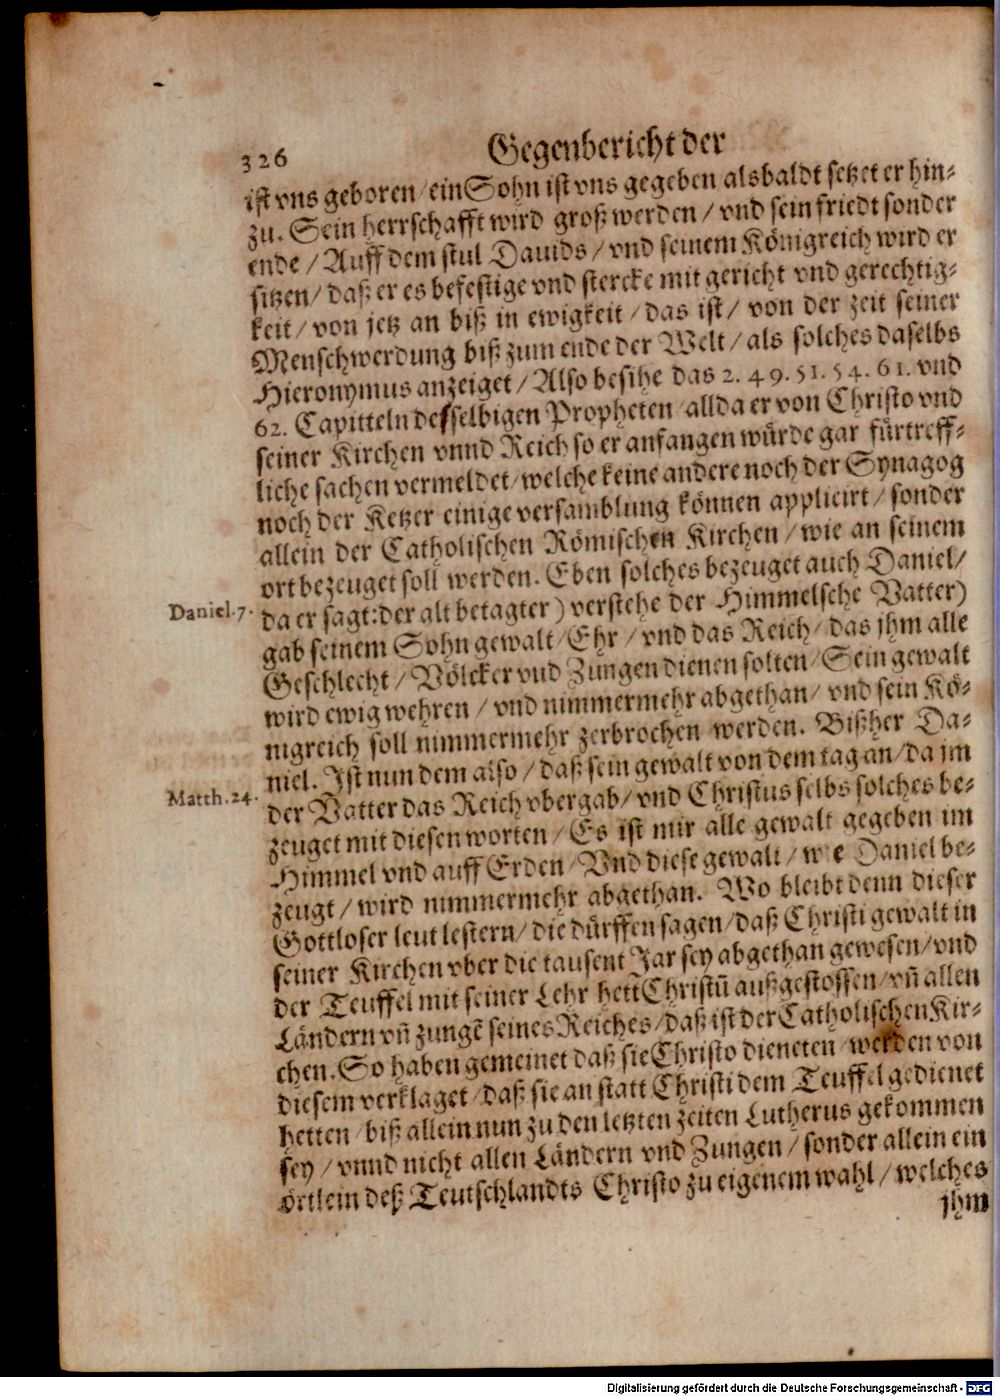 326
Gegenbericht der
ist vns geboren / ein Sohn ist vns gegeben alsbaldt setzet er hin-
zu. Sein herrschafft wird groß werden / vnd sein friedt sonder
ende / Auff dem stul Dauids / vnd seinem Königreich wird er
sitzen / daß er es befestige vnd stercke mit gericht vnd gerechtig-
keit / von jetz an biß in ewigkeit / das ist / von der zeit seiner
Menschwerdung biß zum ende der Welt / als solches daselbs
Hieronymus anzeiget / Also besihe das 2. 49. 51. 54. 61. vnd
62. Capitteln desselbigen Propheten / allda er von Christo vnd
seiner Kirchen vnnd Reich so er anfangen würde gar fürtreff-
liche sachen vermeldet / welche keine andere noch der Synagog
noch der Ketzer einige versamblung können applicirt / sonder
allein der Catholischen Römischen Kirchen / wie an seinem
ort bezeuget soll werden. Eben solches bezeuget auch Daniel /
Daniel. 7.
da er sagt: der alt betagter ) verstehe der Himmelsche Vatter)
gab seinem Sohn gewalt / Ehr / vnd das Reich / das jhm alle
Geschlecht / Völcker vnd Zungen dienen solten / Sein gewalt
wird ewig wehren / vnd nimmermehr abgethan / vnd sein Kö-
nigreich soll nimmermehr zerbrochen werden. Bißher Da-
niel. Ist nun dem also / daß sein gewalt von dem tag an / da jm
Matth. 24.
der Vatter das Reich vbergab / vnd Christus selbs solches be-
zeuget mit diesen worten / Es ist mir alle gewalt gegeben im
Himmel vnd auff Erden / Vnd diese gewalt / wie Daniel be-
zeugt / wird nimmermehr abgethan. Wo bleibt denn dieser
Gottloser leut lestern / die dürffen sagen / daß Christi gewalt in
seiner Kirchen vber die tausent Jar sey abgethan gewesen / vnd
der Teuffel mit seiner Lehr hett Christū außgestossen / vñ allen
Ländern vñ zungē seines Reiches / daß ist der Catholischen Kir-
chen. So haben gemeinet daß sie Christo dieneten / werden von
diesem verklaget / daß sie an statt Christi dem Teuffel gedienet
hetten / biß allein nun zu den letzten zeiten Lutherus gekommen
sey / vnnd nicht allen Ländern vnd Zungen / sonder allein ein
örtlein deß Teutschlandts Christo zu eigenem wahl / welches
jhm
Digitalisierung gefördert durch die Deutsche Forschungsgemeinschaft - DFG